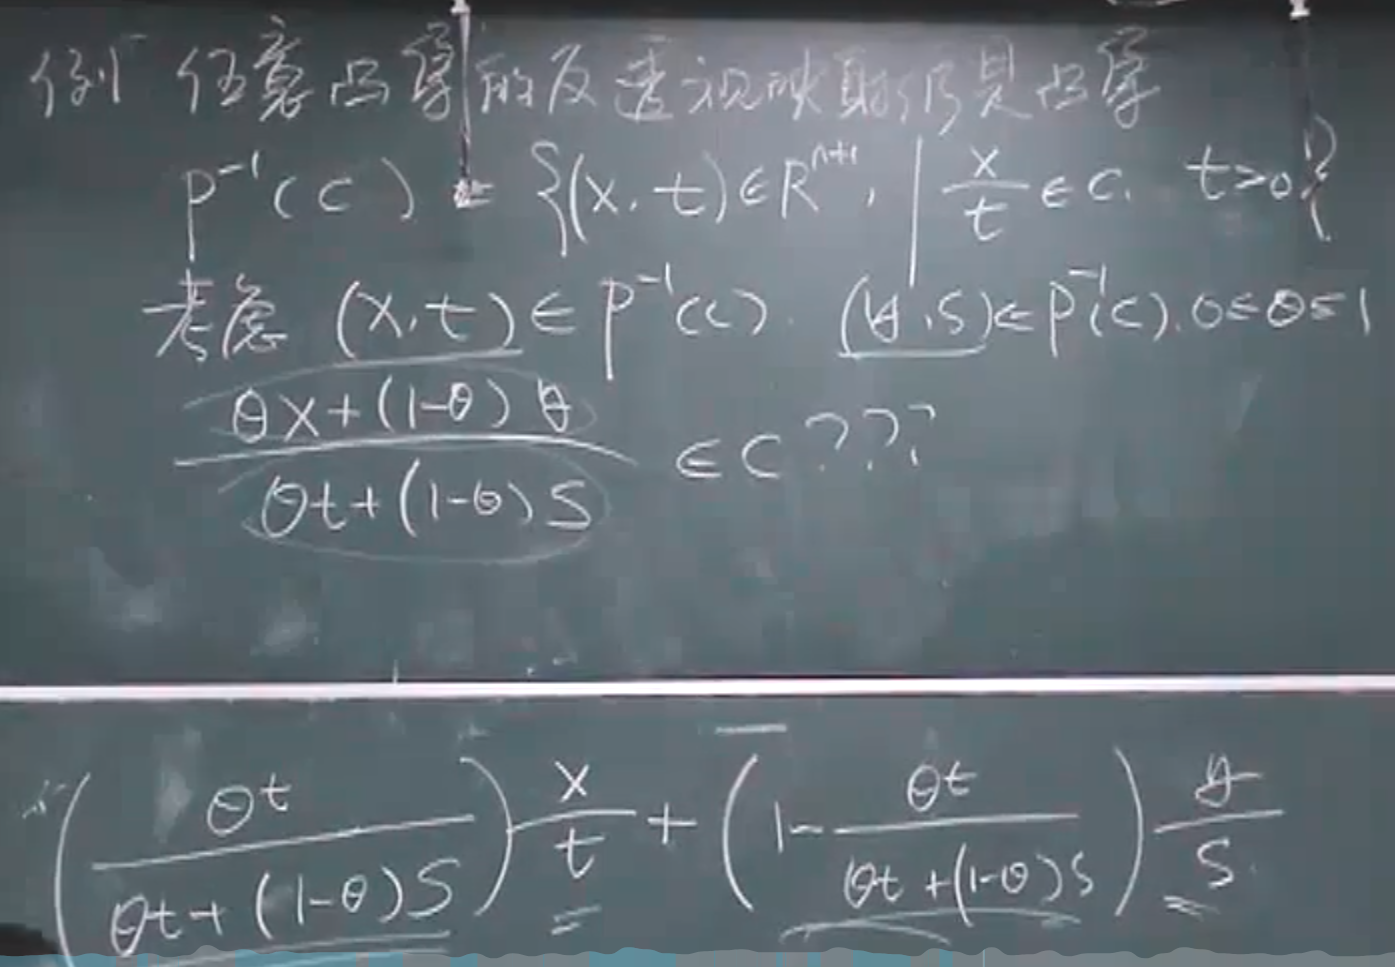 例 任意凸集的反透视映射仍是凸集
P⁻¹(C) = {(x,t)∈Rⁿ⁺¹, | x/t ∈ C, t>0}
考虑 (x,t)∈P⁻¹(C). (y,s)∈P⁻¹(C). 0≤θ≤1
(θx+(1-θ)y)/(θt+(1-θ)s) ∈ C ???
(θt/(θt+(1-θ)s)) x/t + (1-θt/(θt+(1-θ)s)) y/s